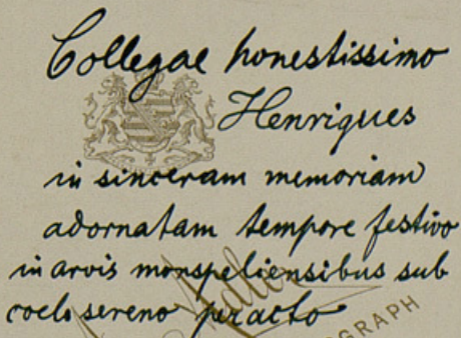 Collegae honestissimo
Henriques
in sinceram memoriam
adornatam tempore festivo
in arvis monspeliensibus sub
coelo sereno peracto
OGRAPH